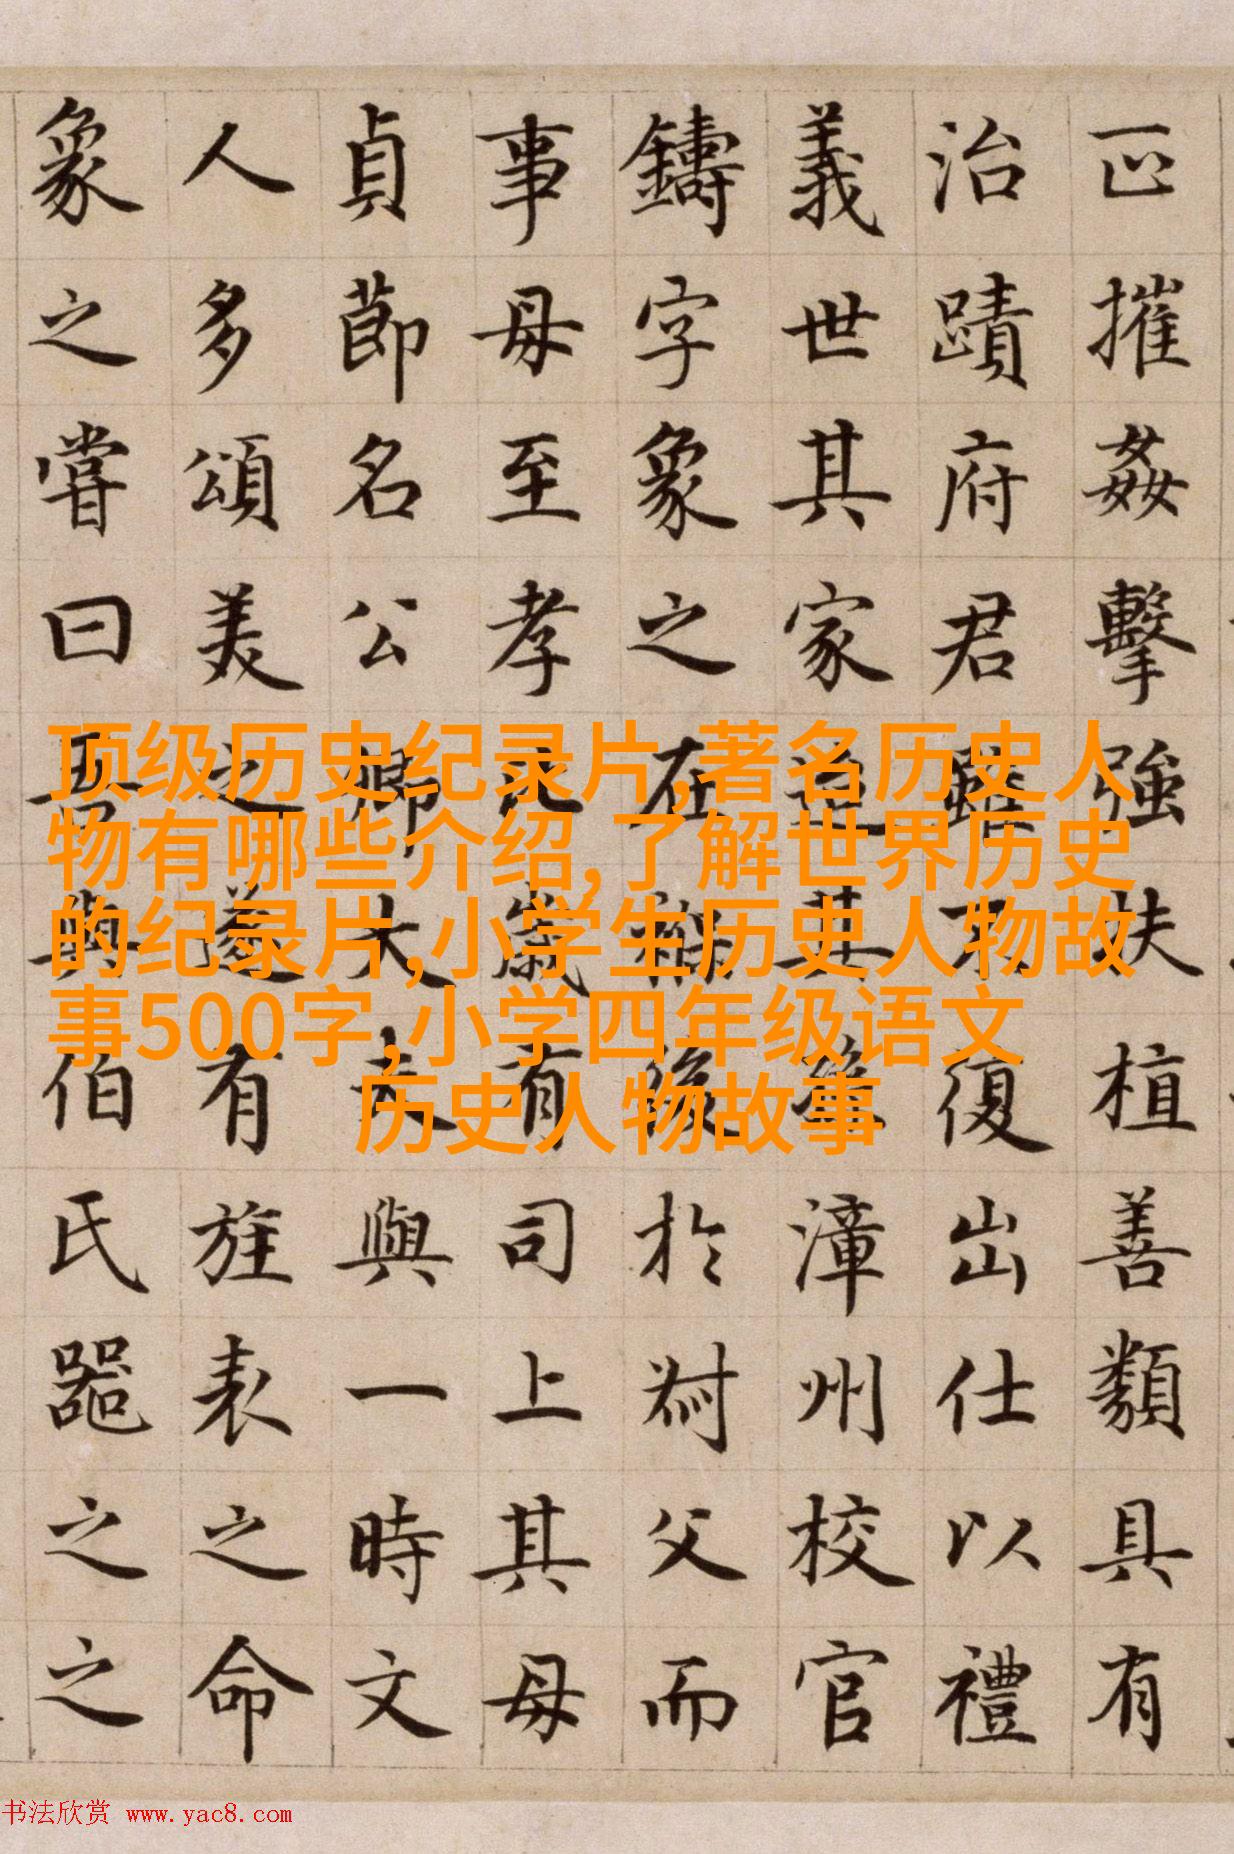 正摧姦擊強扶植善類具有
治蹟府君雖不復出仕以禮
義世其家迨其漳州校官
鑄字象之在襁於父而
事母至孝歲有司上其母
貞節名公卿大夫與一時文
人多頌美之遂有旌表之命
象之嘗曰吾與伯氏器之之
顶级历史纪录片,著名历史人
物有哪些介绍,了解世界历史
的纪录片,小学生历史人物故
事500字,小学四年级语文
历史人物故事
书法欣赏 www.yac8.com